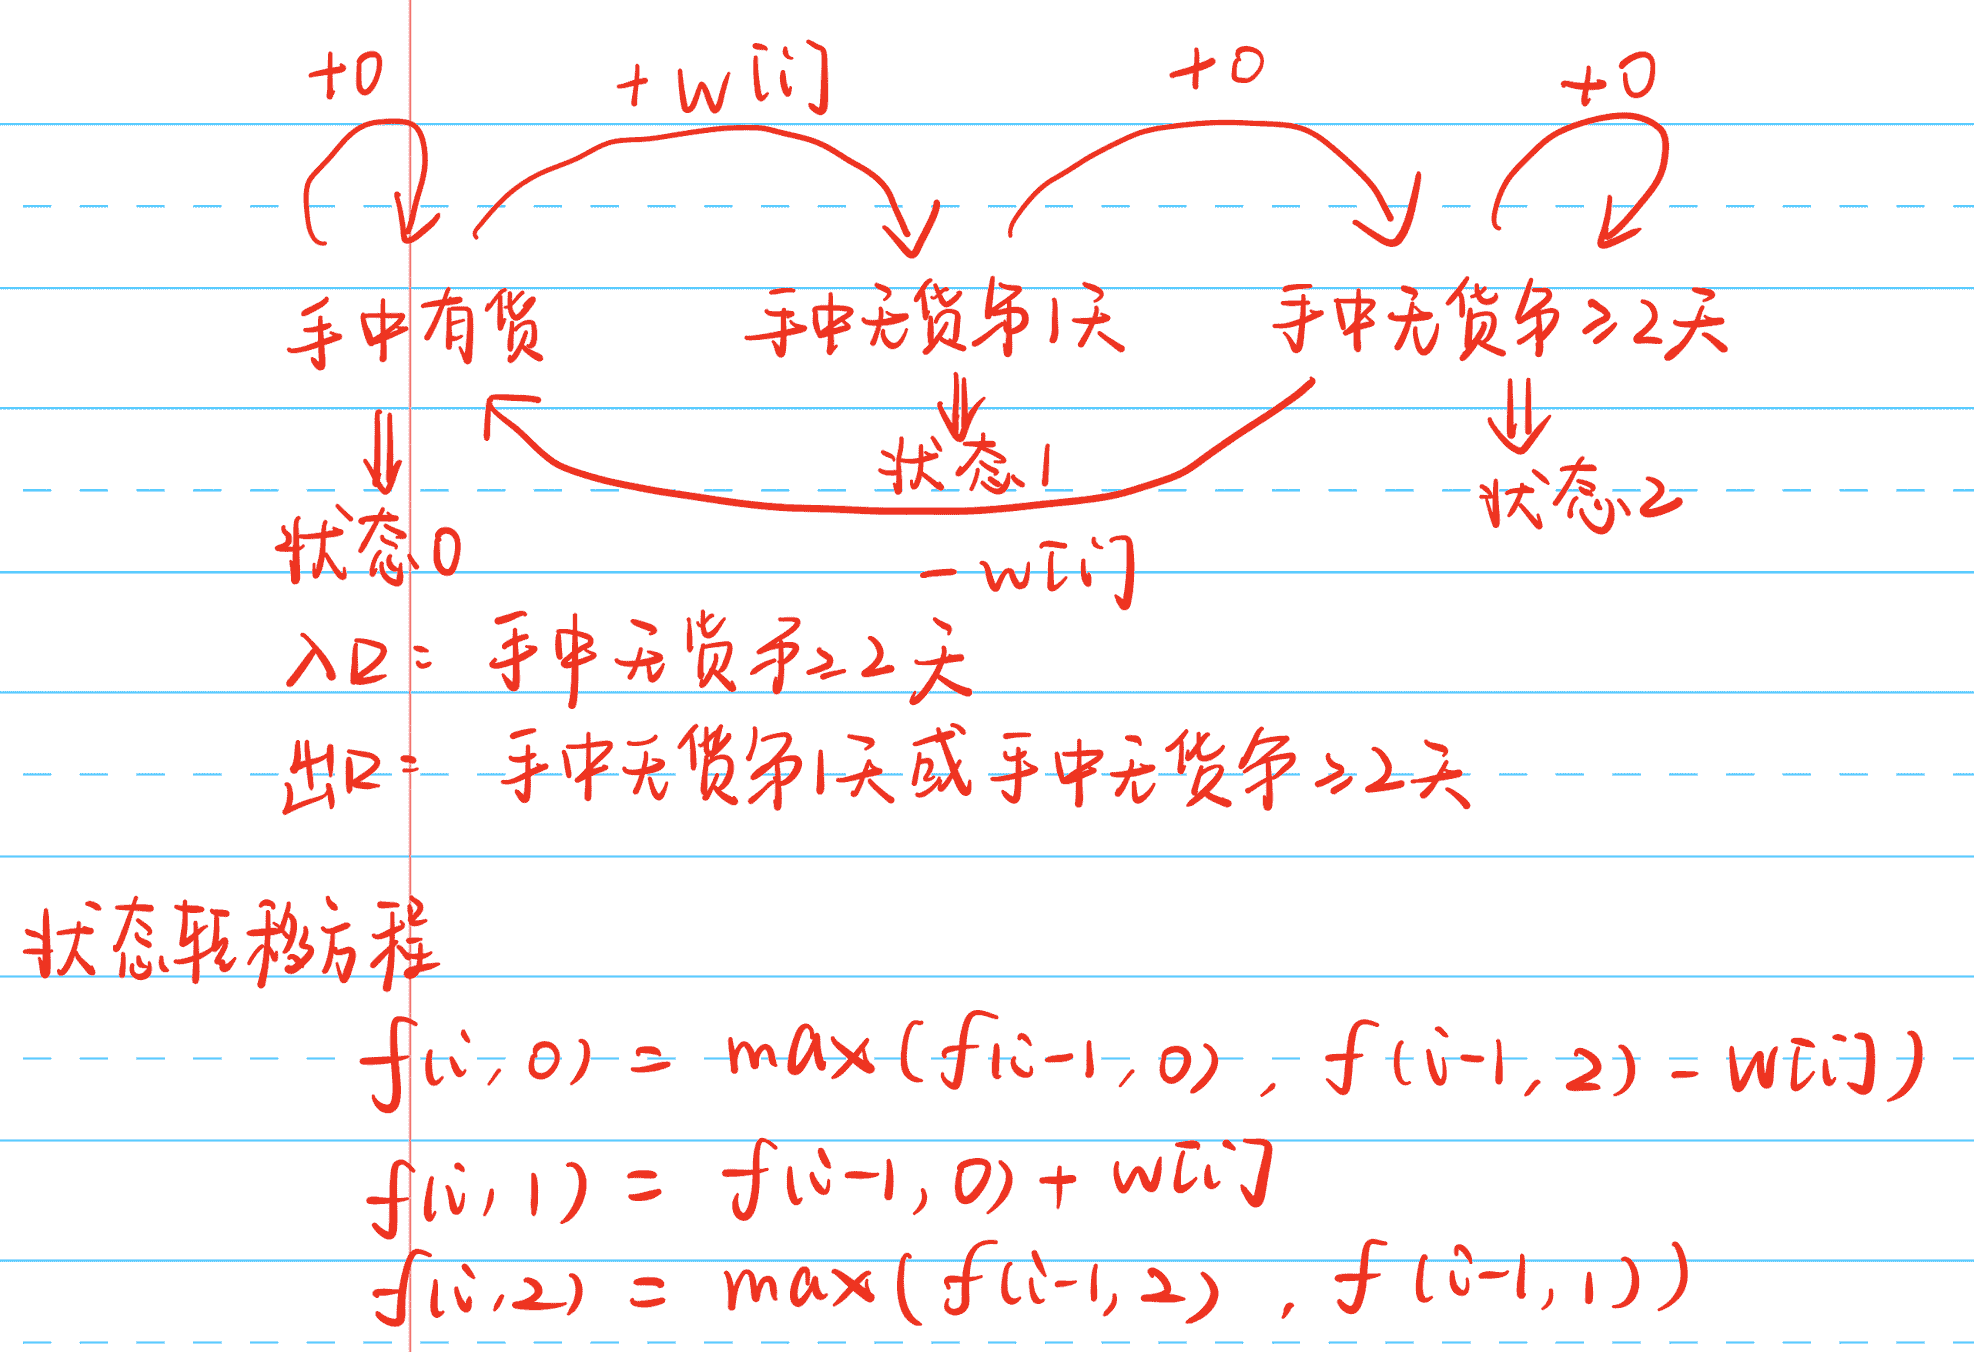 +0 +w[i] +0 +0
手中有货 手中无货第1天 手中无货第≥2天
状态0 状态1 状态2
-w[i]
入口: 手中无货第≥2天
出口: 手中无货第1天或手中无货第≥2天
状态转移方程
f(i,0) = max(f(i-1,0), f(i-1,2)-w[i])
f(i,1) = f(i-1,0)+w[i]
f(i,2) = max(f(i-1,2), f(i-1,1))